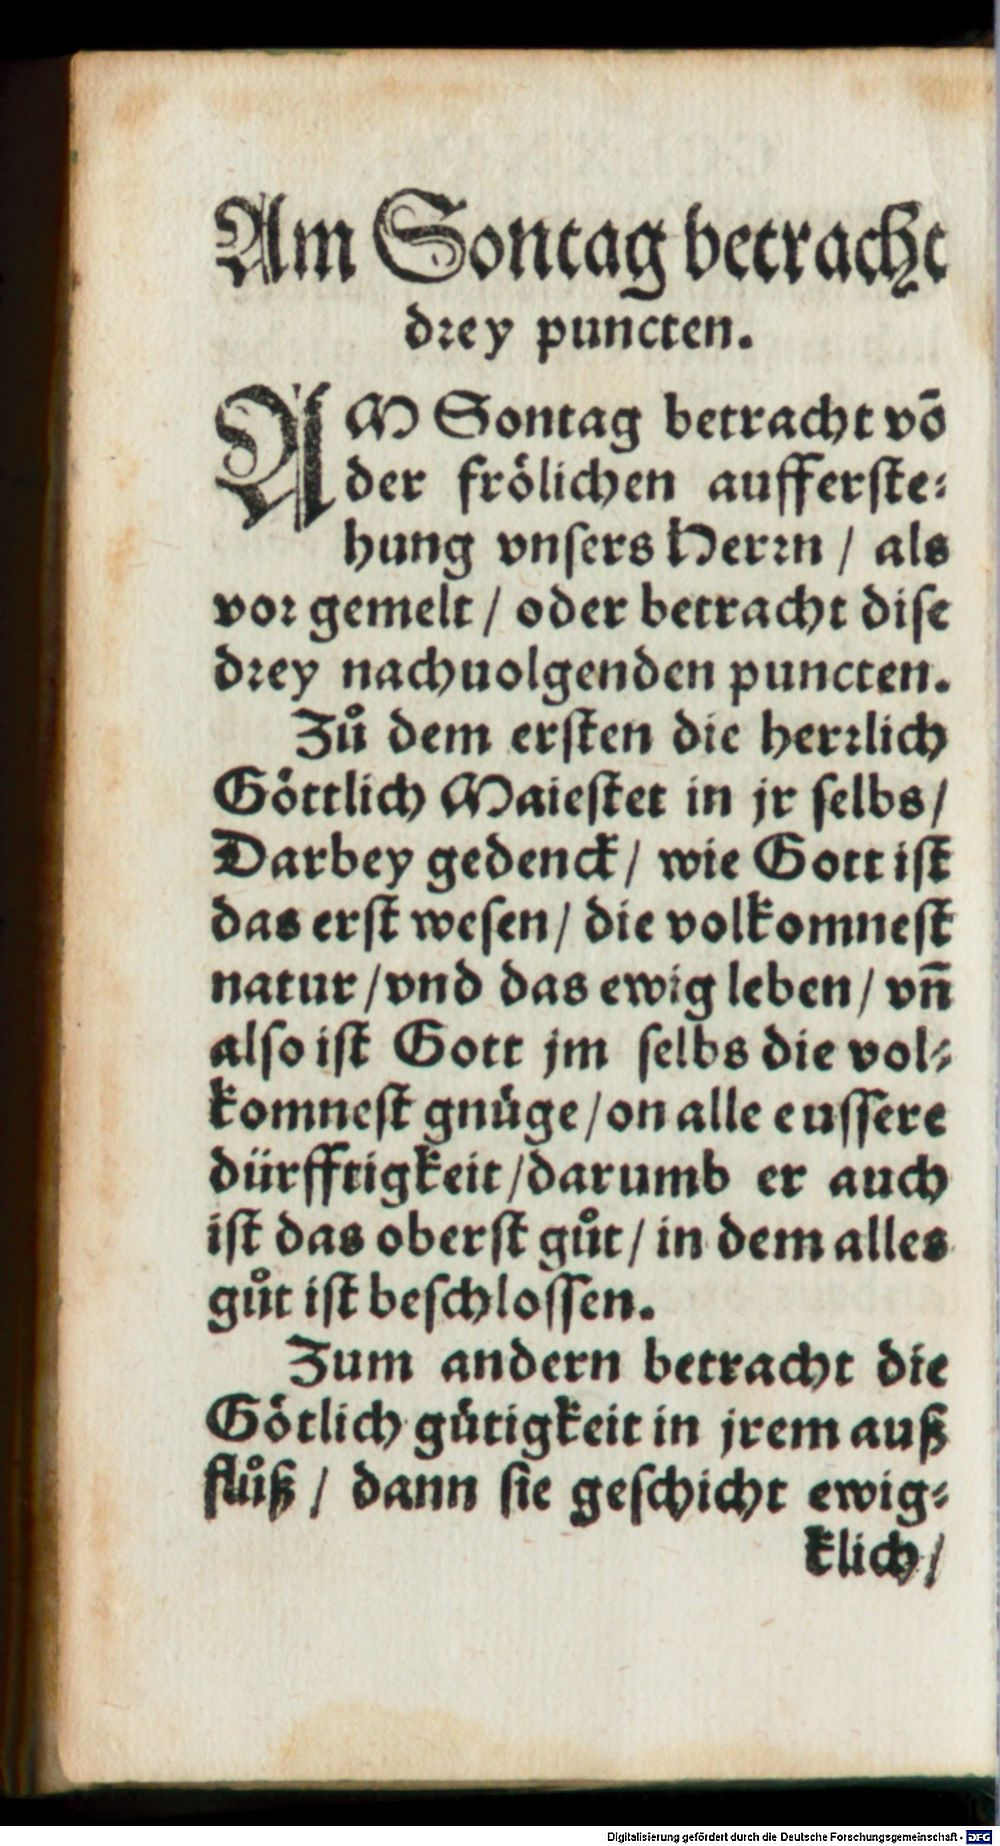 Am Sontag betracht
drey puncten.
AM Sontag betracht võ
der frölichen aufferste⸗
hung vnsers Herrn / als
vor gemelt / oder betracht dise
drey nachuolgenden puncten.
Zů dem ersten die herrlich
Göttlich Maiestet in jr selbs /
Darbey gedenck / wie Gott ist
das erst wesen / die volkomnest
natur / vnd das ewig leben / vñ
also ist Gott jm selbs die vol⸗
komnest gnüge / on alle eussere
dürfftigkeit / darumb er auch
ist das oberst gůt / in dem alles
gůt ist beschlossen.
Zum andern betracht die
Götlich gütigkeit in jrem auß
flůß / dann sie geschicht ewig⸗
klich /
Digitalisierung gefördert durch die Deutsche Forschungsgemeinschaft - DFG